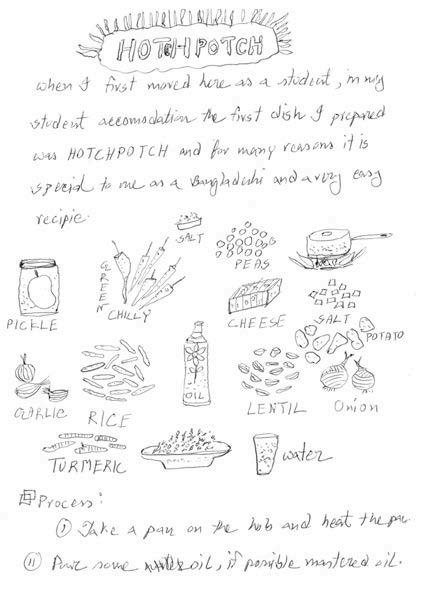 HOTCHPOTCH
when I first moved here as a student, in my
student accomodation the first dish I prepared
was HOTCHPOTCH and for many reasons it is
special to me as a Bangladeshi and a very easy
recipie.
SALT
PEAS
GREEN
CHILLY
PICKLE
CHEESE
SALT
POTATO
GARLIC
RICE
OIL
LENTIL
Onion
TURMERIC
water
Process:
(i) Take a pan on the hob and heat the pan.
(ii) Pour some oil, if possible mastered oil.